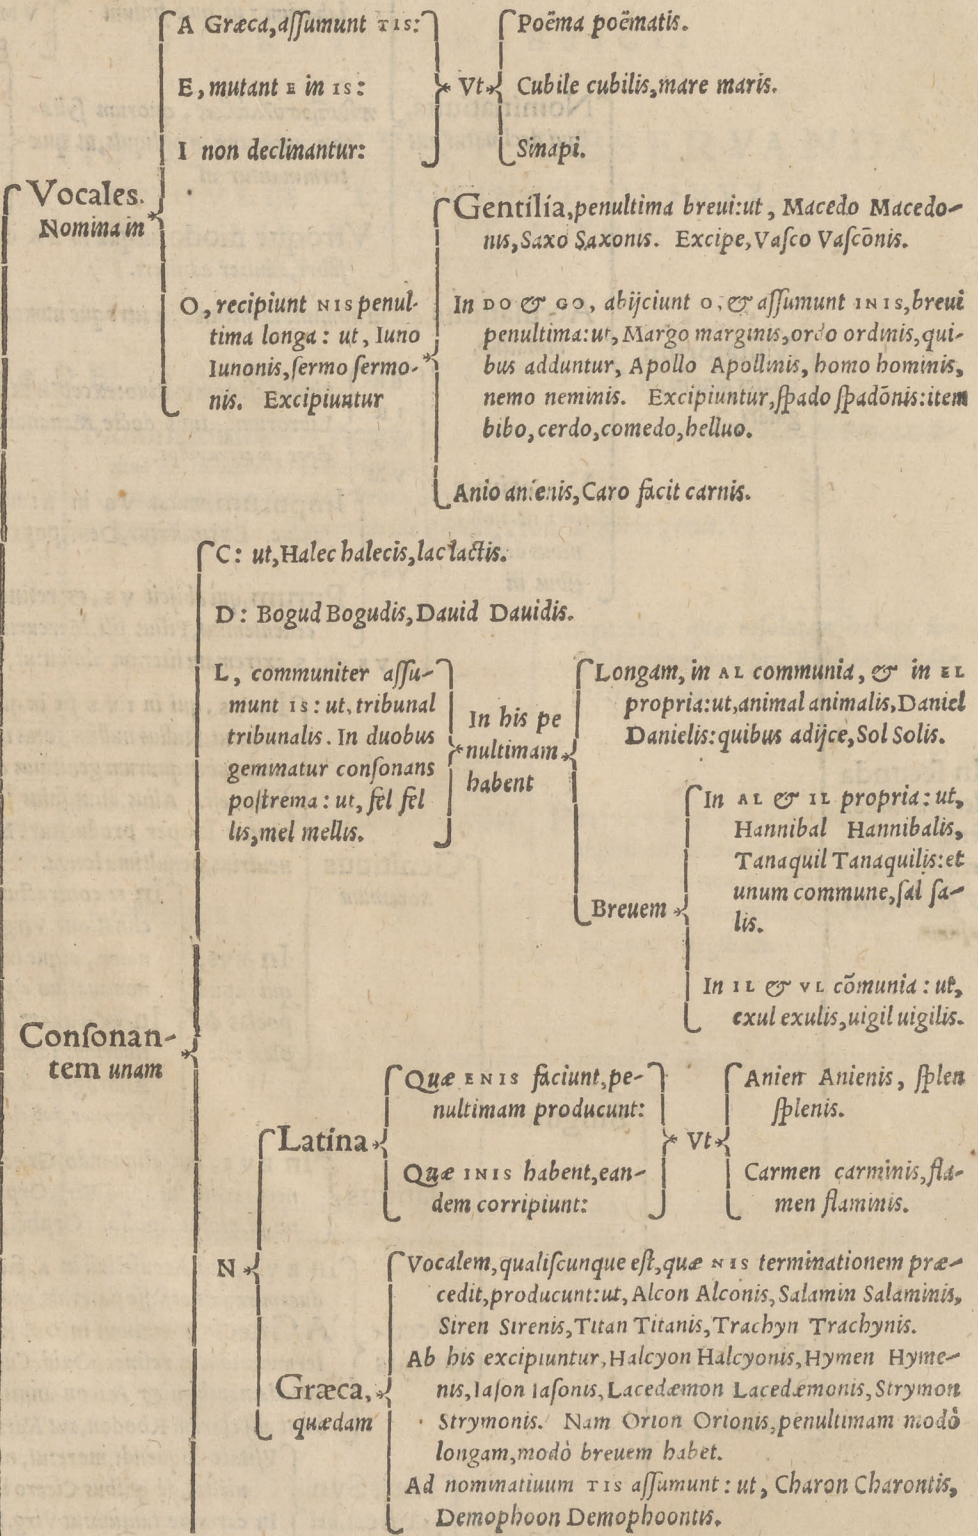 Vocales.
Nomina in
A Græca, aſſumunt TIS:
E, mutant E in IS:
I non declinantur:
Vt
Poëma poëmatis.
Cubile cubilis, mare maris.
Sinapi.
O, recipiunt NIS penul-
tima longa: ut, Iuno
Iunonis, ſermo ſermo-
nis. Excipiuntur
Gentilia, penultima breui: ut, Macedo Macedo-
nis, Saxo Saxonis. Excipe, Vaſco Vaſcōnis.
In DO & GO, abijciunt O, & aſſumunt INIS, breui
penultima: ut, Margo marginis, ordo ordinis, qui-
bus adduntur, Apollo Apollinis, homo hominis,
nemo neminis. Excipiuntur, ſpado ſpadōnis: item
bibo, cerdo, comedo, helluo.
Anio anienis, Caro facit carnis.
Conſonan-
tem unam
C: ut, Halec halecis, lac lactis.
D: Bogud Bogudis, Dauid Dauidis.
L, communiter aſſu-
munt IS: ut, tribunal
tribunalis. In duobus
geminatur conſonans
poſtrema: ut, fel fel
lis, mel mellis.
In his pe
nultimam
habent
Longam, in AL communia, & in EL
propria: ut, animal animalis, Daniel
Danielis: quibus adijce, Sol Solis.
Breuem
In AL & IL propria: ut,
Hannibal Hannibalis,
Tanaquil Tanaquilis: et
unum commune, ſal ſa-
lis.
In IL & VL cōmunia: ut,
exul exulis, uigil uigilis.
N
Latina
Quæ ENIS faciunt, pe-
nultimam producunt:
Quæ INIS habent, ean-
dem corripiunt:
Vt
Anien Anienis, ſplen
ſplenis.
Carmen carminis, fla-
men flaminis.
Græca,
quædam
Vocalem, qualiſcunque eſt, quæ NIS terminationem præ-
cedit, producunt: ut, Alcon Alconis, Salamin Salaminis,
Siren Sirenis, Titan Titanis, Trachyn Trachynis.
Ab his excipiuntur, Halcyon Halcyonis, Hymen Hyme-
nis, Iaſon Iaſonis, Lacedæmon Lacedæmonis, Strymon
Strymonis. Nam Orion Orionis, penultimam modò
longam, modò breuem habet.
Ad nominatiuum TIS aſſumunt: ut, Charon Charontis,
Demophoon Demophoontis.